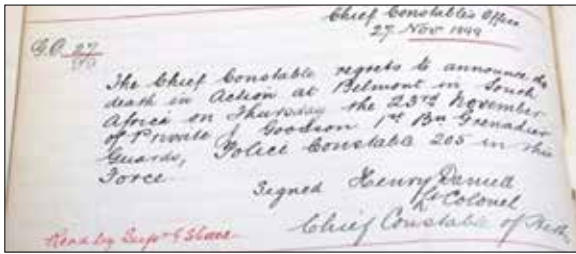 Chief Constable's Office
27 Nov 1899
G.O. 27
99
The Chief Constable regrets to announce the
death in Action at Belmont in South
Africa on Thursday the 23rd November
of Private J Goodson 1st Bn Grenadier
Guards, Police Constable 205 in this
Force
Signed Henry Daniell
Lt Colonel
Chief Constable of
Read by Supt G